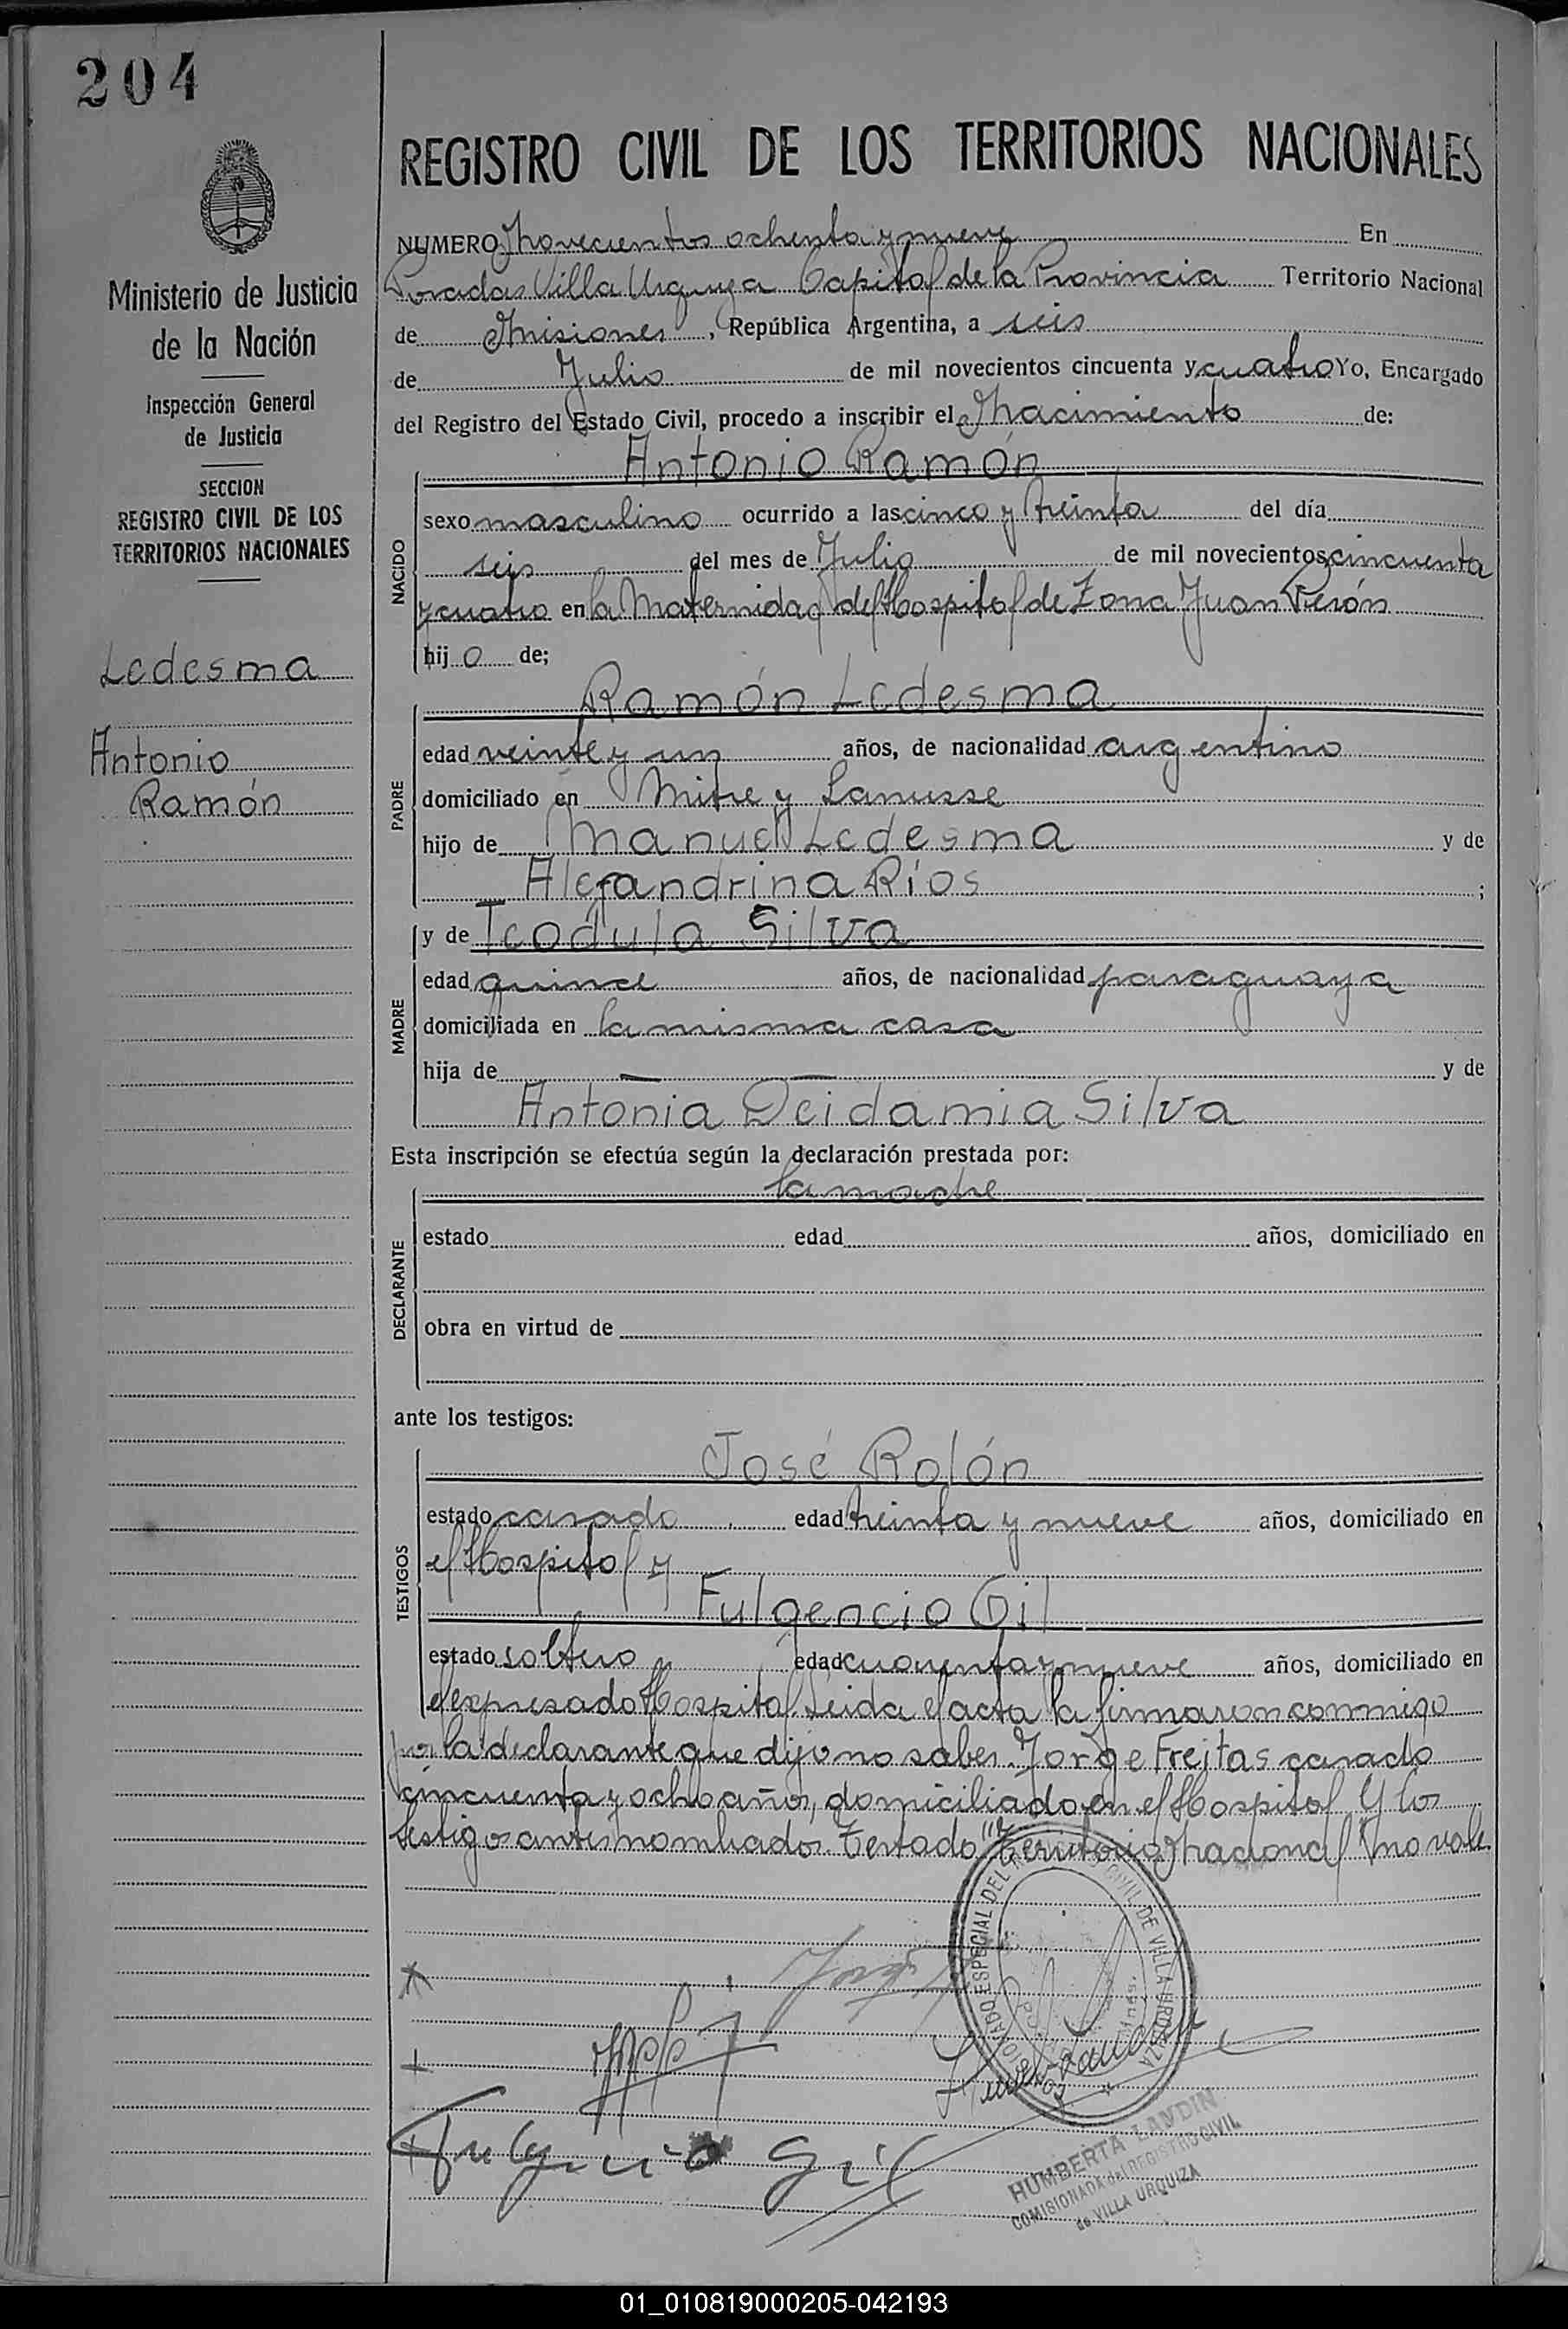 204
Ministerio de Justicia
de la Nación
Inspección General
de Justicia
SECCION
REGISTRO CIVIL DE LOS
TERRITORIOS NACIONALES
Ledesma
Antonio
Ramón
REGISTRO CIVIL DE LOS TERRITORIOS NACIONALES
NUMERO Novecientos ochenta y nueve En
Posadas Villa Urquiza Capital de la Provincia Territorio Nacional
de Misiones, República Argentina, a seis
de Julio de mil novecientos cincuenta y cuatro Yo, Encargado
del Registro del Estado Civil, procedo a inscribir el Nacimiento de:
Antonio Ramón
NACIDO
sexo masculino ocurrido a las cinco y treinta del día
seis del mes de Julio de mil novecientos cincuenta
y cuatro en la Maternidad del Hospital de Zona Juan Perón
hijo de;
Ramón Ledesma
PADRE
edad veinte y un años, de nacionalidad argentino
domiciliado en Mitre y Lanusse
hijo de Manuel Ledesma y de
Alejandrina Ríos ;
MADRE
y de Teodula Silva
edad quince años, de nacionalidad paraguaya
domiciliada en la misma casa
hija de — — y de
Antonia Deidamia Silva
Esta inscripción se efectúa según la declaración prestada por:
la madre
DECLARANTE
estado edad años, domiciliado en
obra en virtud de
ante los testigos:
José Rolón
TESTIGOS
estado casado edad treinta y nueve años, domiciliado en
el Hospital y
Fulgencio Gil
estado soltero edad cuarenta y nueve años, domiciliado en
el expresado Hospital Leida el acta la firmaron conmigo
por la declarante que dijo no saber Jorge Freitas casado
cincuenta y ocho años, domiciliado en el Hospital Y los
testigos antes nombrados. Testado "Territorio Nacional" no vale
Jorge
Fulgencio Gil
COMISIONADO ESPECIAL DEL CIVIL DE VILLA URQUIZA
HUMBERTA LANDIN
COMISIONADA del REGISTRO CIVIL
de VILLA URQUIZA
01_010819000205-042193